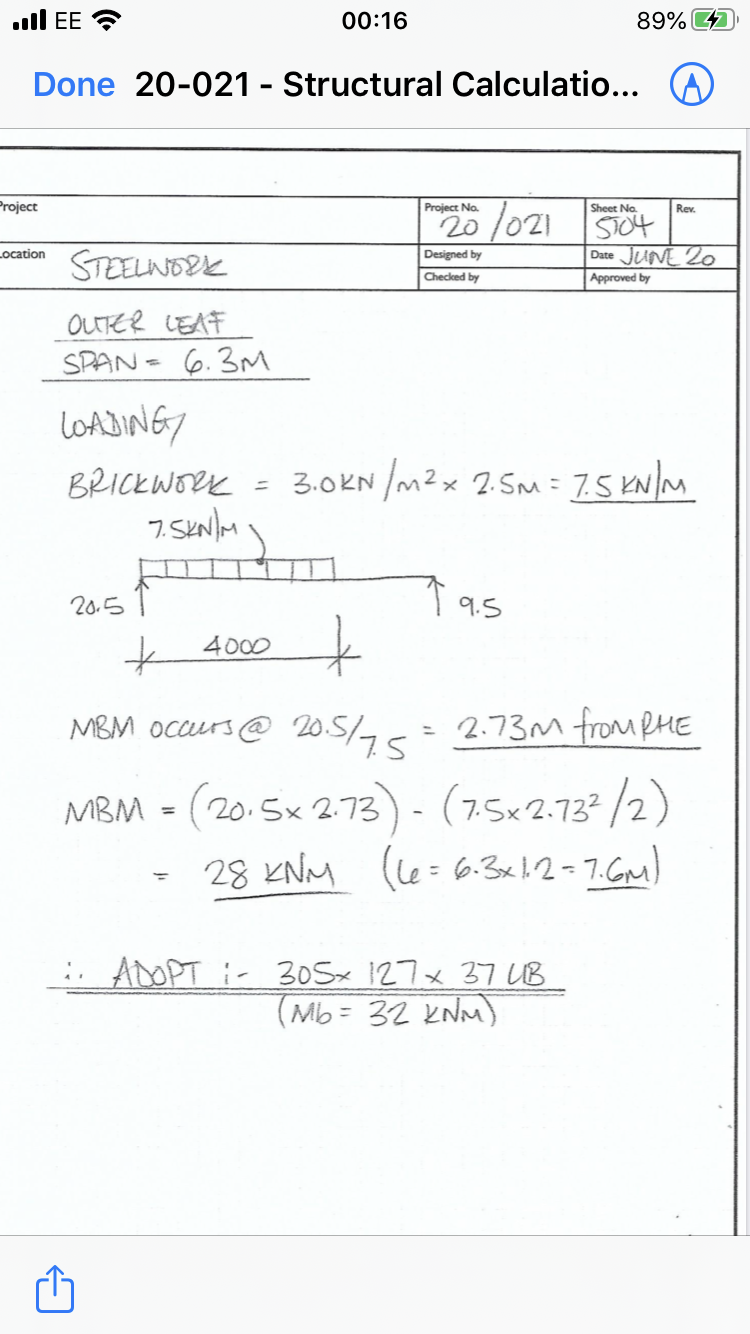 EE 00:16 89%
Done 20-021 - Structural Calculatio...
Project
Project No.
20/021
Sheet No.
ST04
Rev.
Location
STEELWORK
Designed by
Date JUNE 20
Checked by
Approved by
OUTER LEAF
SPAN = 6.3M
LOADING/
BRICKWORK = 3.0KN/m² x 2.5M = 7.5 KN/M
7.5KN/M
20.5
9.5
4000
MBM occurs @ 20.5/7.5 = 2.73M from RHE
MBM = (20.5x 2.73) - (7.5x2.73²/2)
= 28 KNM (le = 6.3x1.2 = 7.6M)
∴ ADOPT :- 305x 127x 37 UB
(Mb = 32 KNM)